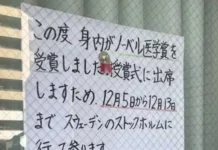 この度 身内がノーベル医学賞を
受賞しました。授賞式に出席
しますため、12月5日から12月13日
まで スウェーデンのストックホルムに
行って参ります